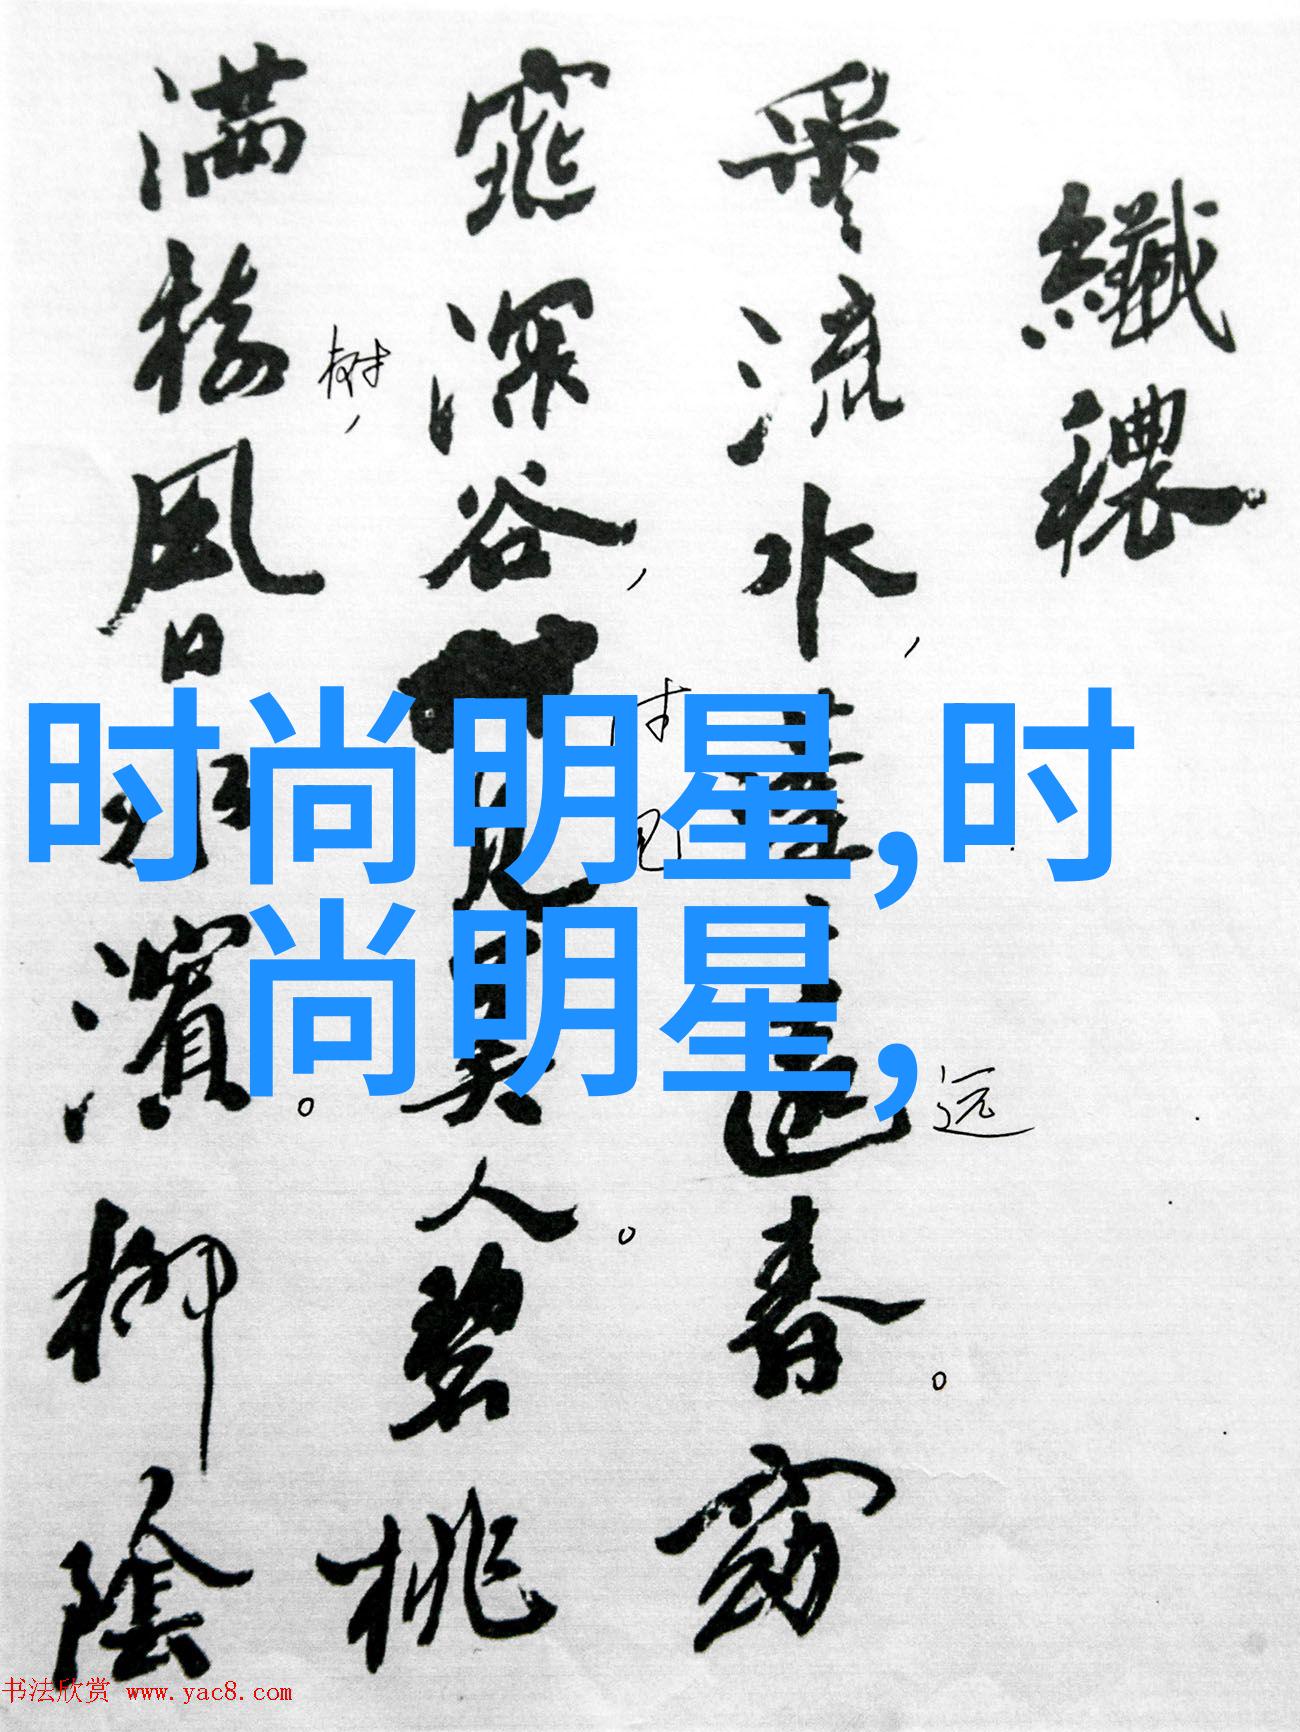 纖穠
采流水，
遠春。窈
窕深谷，
時見美人。碧桃
满樹風日水濱。柳陰
树，
时
见
远
时尚明星,时
尚明星,
书法欣赏 www.yac8.com